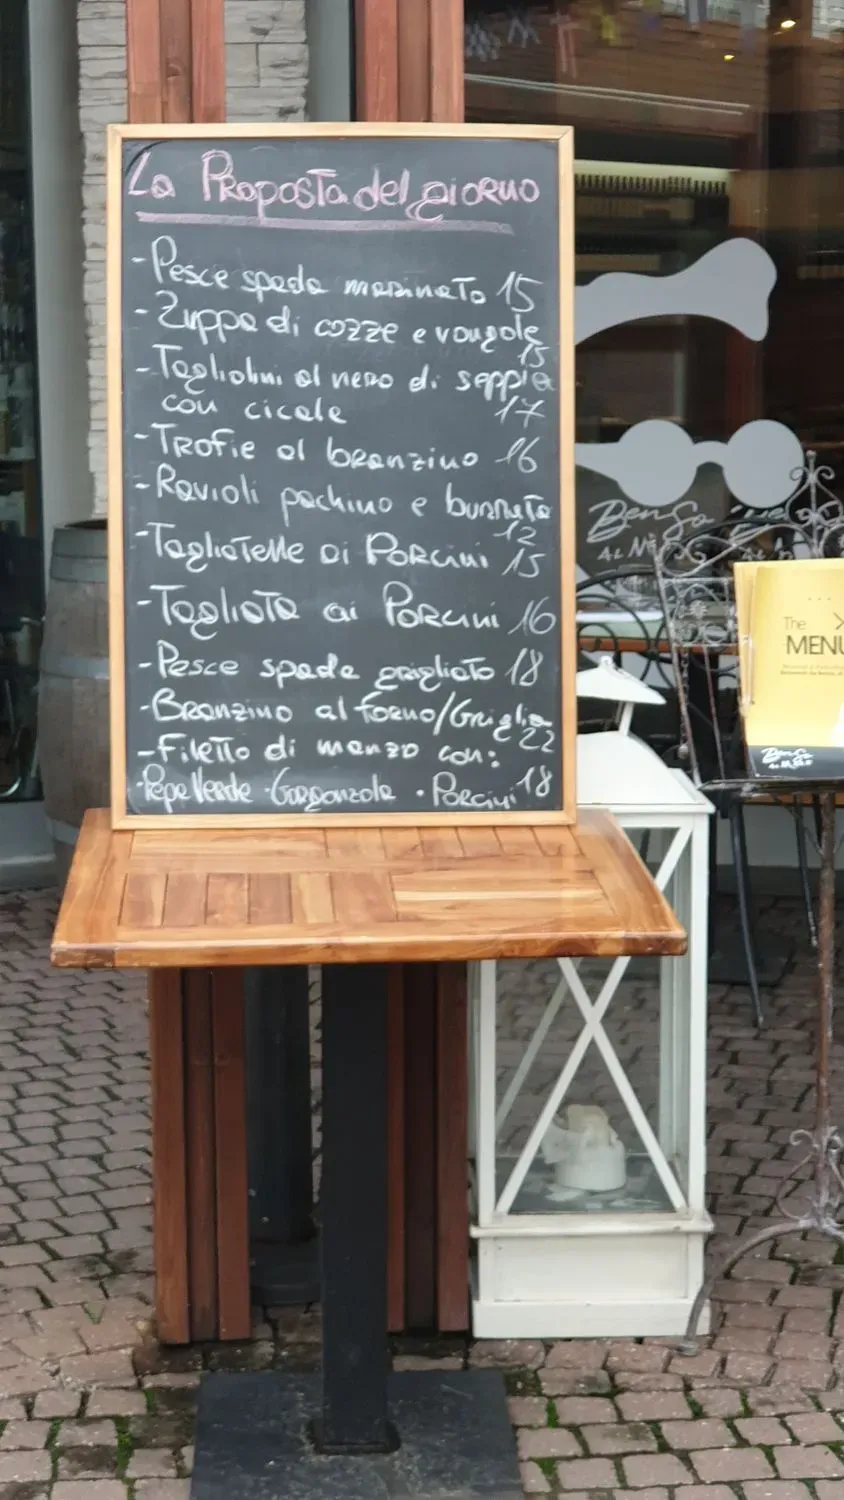 La Proposta del giorno
- Pesce spada marinato 15
- Zuppa di cozze e vongole
15
- Tagliolini al nero di seppia
con cicale 17
- Trofie al branzino 16
- Ravioli pachino e burrata
12
- Tagliatelle ai Porcini 15
- Tagliata ai Porcini 16
- Pesce spada grigliato 18
- Branzino al forno/Griglia
22
- Filetto di manzo con:
·Pepe Verde ·Gorgonzola ·Porcini 18
The
MENU